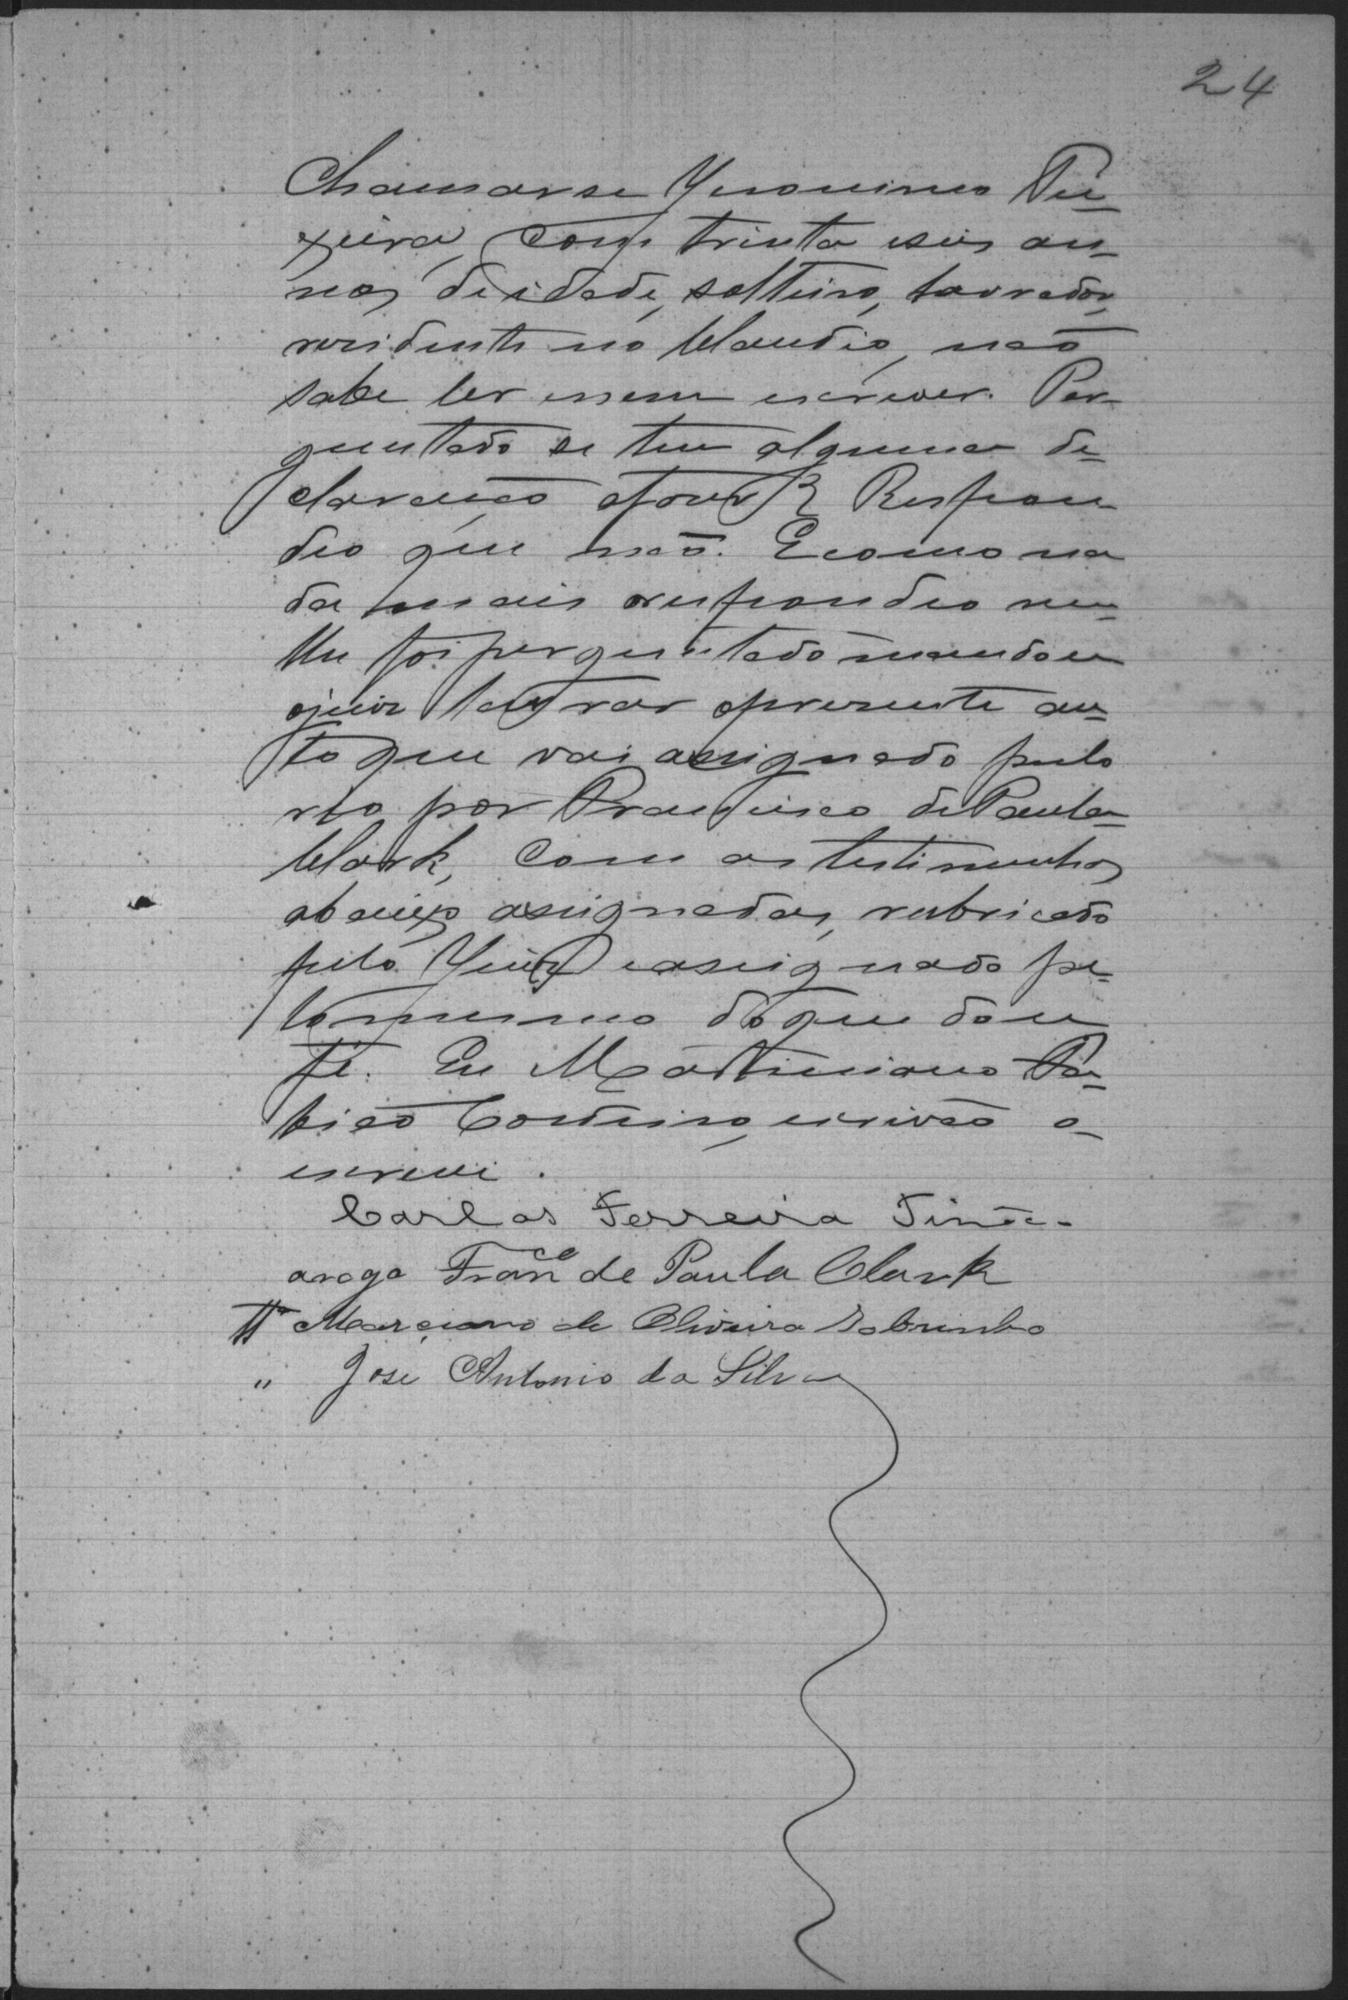 24
Chamarse Yeronimo Tei=
xeira, com trinta e seis an=
nos de idade, soltteiro, lavrador,
residente no Claudio, não
sabe ler e nem escrever. Per-
guntado se tem alguma de=
claração afazer? Respon-
deo que não. E como na
da mais respondeo nem
lhe foi perguntado mandou
ojuiz lavrar opresente au=
to que vai assignado pelo
réo por Francisco de Paula
Clark, com as testimunhas
abaixo assignadas, rubricado
pelo Yuiz e assignado pe=
lo mesmo do que dou
fé. Eu Martiniano
Cordeiro, escrivão o
escrevi.
Carlos Ferreira
arogo Franco de Paula Clark
Marciano de Oliveira Sobrinho
" José Antonio da Silva